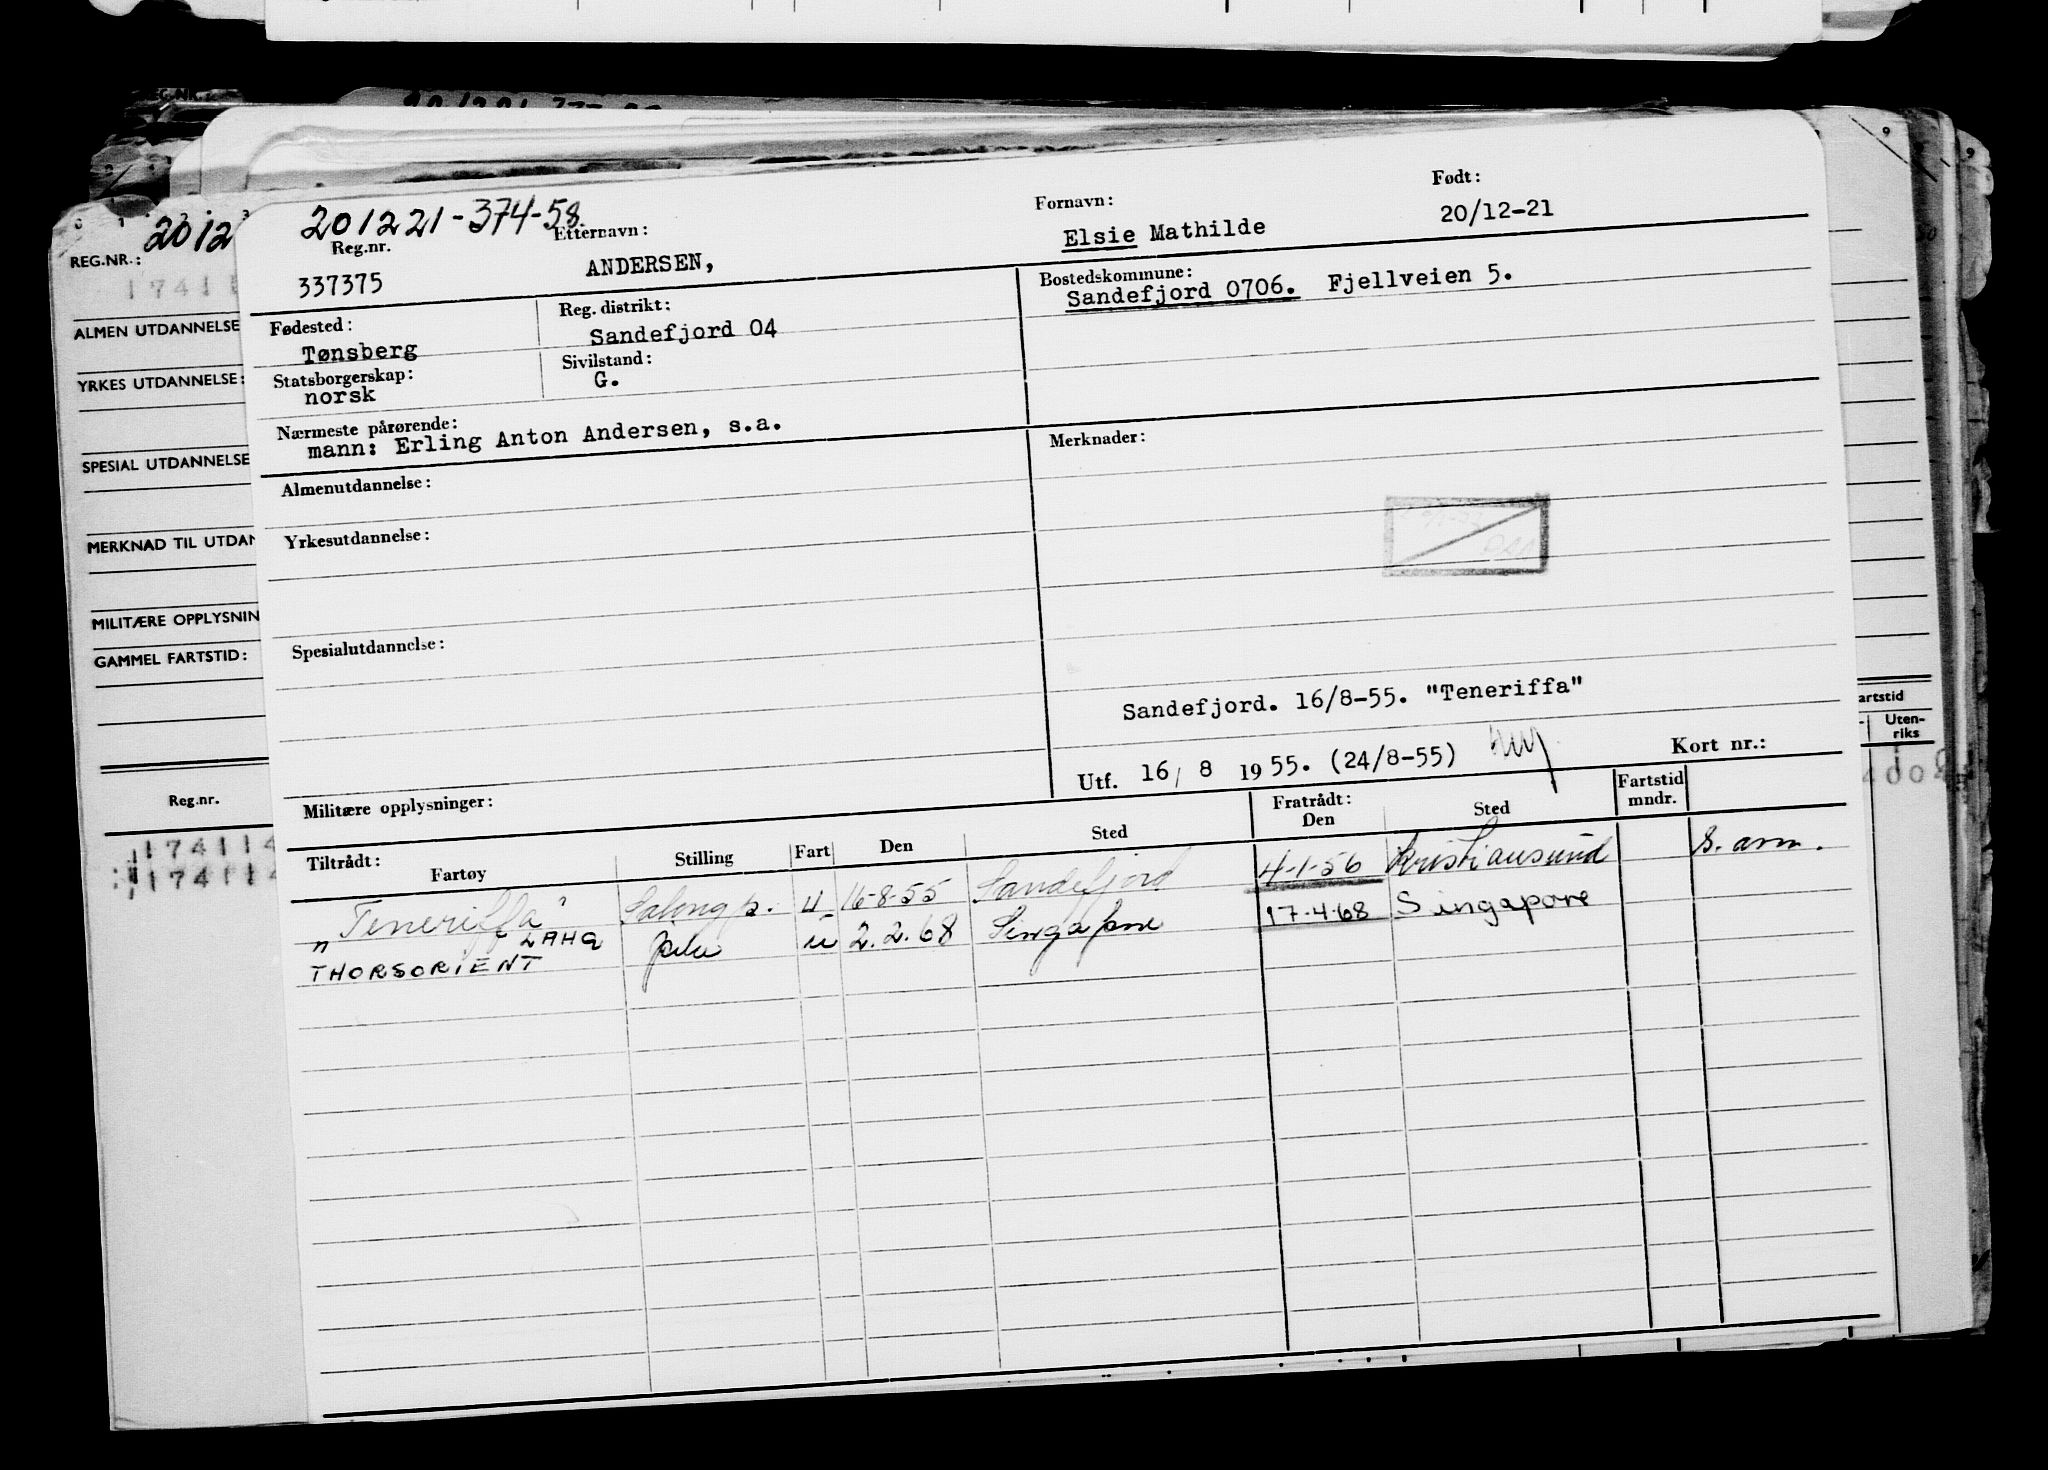 REG.NR.: 2012
ALMEN UTDANNELSE
YRKES UTDANNELSE:
SPESIAL UTDANNELSE
MERKNAD TIL UTDAN
MILITÆRE OPPLYSNIN
GAMMEL FARTSTID:
Reg.nr.
174114
174114
201221-374-58.
Reg.nr. Etternavn: Fornavn: Født:
337375 ANDERSEN, Elsie Mathilde 20/12-21
Fødested: Reg. distrikt: Bostedskommune:
Tønsberg Sandefjord 04 Sandefjord 0706. Fjellveien 5.
Statsborgerskap: Sivilstand:
norsk G.
Nærmeste pårørende:
mann: Erling Anton Andersen, s.a.
Merknader:
Almenutdannelse:
Yrkesutdannelse:
Spesialutdannelse:
Sandefjord. 16/8-55. "Teneriffa"
Utf. 16/ 8 1955. (24/8-55) Kort nr.:
Militære opplysninger:
Tiltrådt: Fartøy Stilling Fart Den Sted Fratrådt: Den Sted Fartstid mndr.
"Teneriffa" Salongp. u 16-8-55 Sandefjord 4-1-56 Kristiansund
LAHQ
THORSORIENT u 2.2.68 Singapore 17-4-68 Singapore
artstid
Uten-
riks